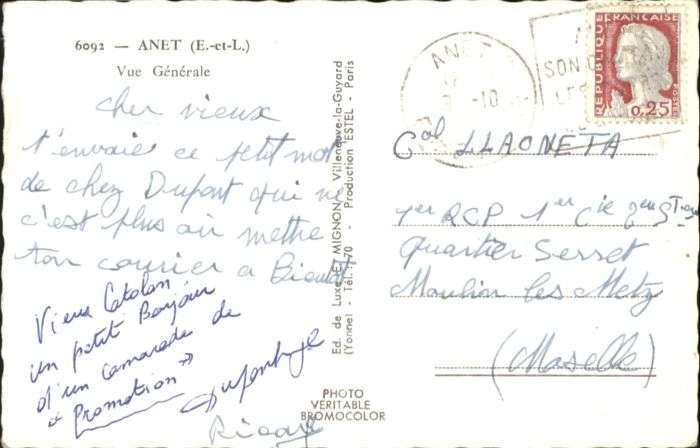 6092 — ANET (E.-et-L.)
Vue Générale
cher vieux
t'envoie ce petit mot
de chez Dupont qui ne
c'est plus où mettre
ton courier a Bientôt
Vieux Catalan
un petit Bonjour
d'un camarade de
"Promotion"
PHOTO
VERITABLE
BROMOCOLOR
Ed. de Luxe "EL MIGNON" Villeneuve-la-Guyard
(Yonne) - Tél. : 70 - Production LESTEL - Paris
ANET
-10
SON
LES
REPUBLIQUE FRANÇAISE
POSTES
0,25
Col LLAONETA
1er RCP 1er Cie 2em S
Quartier Serret
Moulin les Metz
(Moselle)